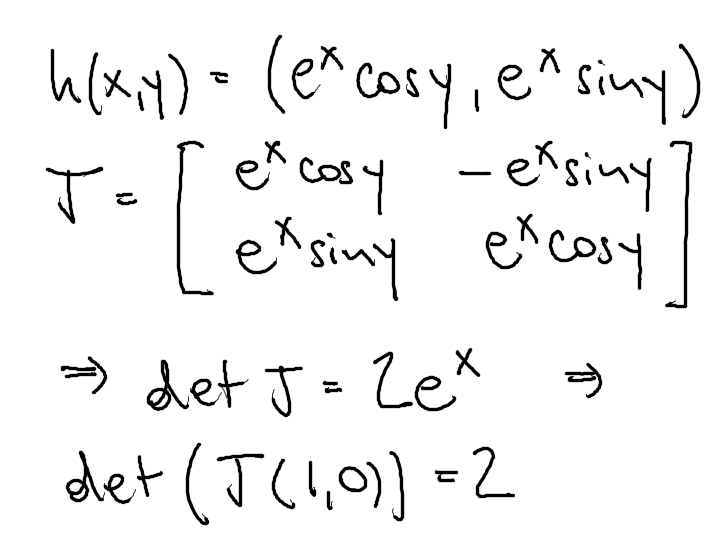 h(x,y) = (e^x cosy, e^x siny)
J = [ e^x cosy  -e^x siny
e^x siny  e^x cosy ]
⇒ det J = 2e^x ⇒
det (J(1,0)) = 2